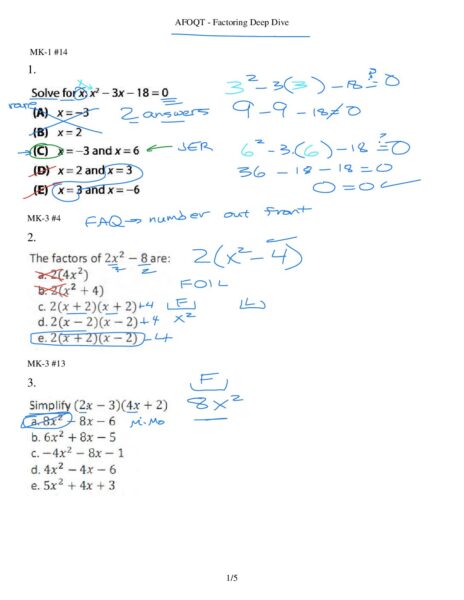 AFOQT - Factoring Deep Dive
MK-1 #14
1.
Solve for x: x² − 3x − 18 = 0
rare
(A) x = −3
2 answers
(B) x = 2
(C) x = −3 and x = 6 ← JER
(D) x = 2 and x = 3
(E) x = 3 and x = −6
3² − 3(3) − 18 ≟ 0
9 − 9 − 18 ≠ 0
6² − 3·(6) − 18 ≟ 0
36 − 18 − 18 = 0
0 = 0 ✓
MK-3 #4
FAQ → number out front
2.
The factors of 2x² − 8 are:
2 2
2(x² − 4)
a. 2(4x²)
b. 2(x² + 4)
c. 2(x + 2)(x + 2) +4
d. 2(x − 2)(x − 2) +4
e. 2(x + 2)(x − 2) −4
FOIL
F L
x²
MK-3 #13
3.
Simplify (2x − 3)(4x + 2)
F
8x²
a. 8x² − 8x − 6 Mi-Mo
b. 6x² + 8x − 5
c. −4x² − 8x − 1
d. 4x² − 4x − 6
e. 5x² + 4x + 3
1/5